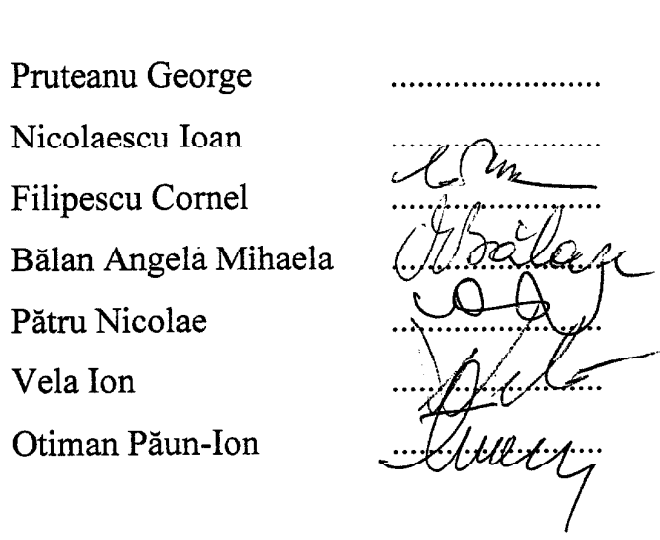 Pruteanu George ........................
Nicolaescu Ioan ........................
Filipescu Cornel ........................
Bălan Angela Mihaela ........................
Bălan
Pătru Nicolae ........................
Vela Ion ........................
Otiman Păun-Ion ........................